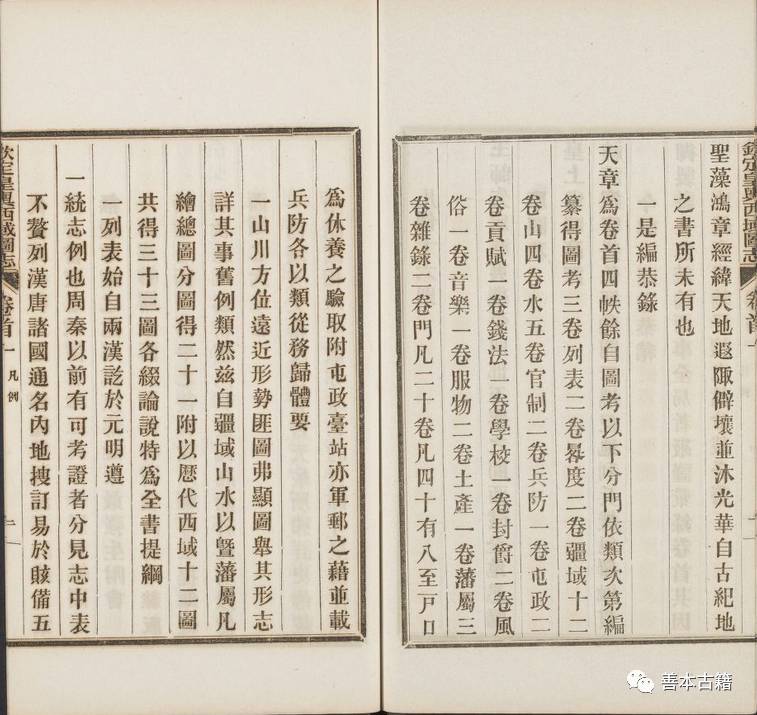 聖藻鴻章經緯天地遐陬僻壤並沐光華自古紀地
之書所未有也
一是編恭錄
天章爲卷首四帙餘自圖考以下分門依類次第編
纂得圖考三卷列表二卷晷度二卷疆域十二
卷山四卷水五卷官制二卷兵防一卷屯政二
卷貢賦一卷錢法一卷學校一卷封爵二卷風
俗一卷音樂一卷服物二卷土產一卷藩屬三
卷雜錄二卷門凡二十卷凡四十有八至戸口
欽定皇輿西域圖志
卷首一
爲休養之驗取附屯政臺站亦軍郵之藉並載
兵防各以類從務歸體要
一山川方位遠近形勢匪圖弗顯圖舉其形志
詳其事舊例類然兹自疆域山水以曁藩屬凡
繪總圖分圖得二十一附以歷代西域十二圖
共得三十三圖各綴論說特爲全書提綱
一列表始自兩漢訖於元明遵
一統志例也周秦以前有可考證者分見志中表
不贅列漢唐諸國通名內地搜訂易於賅備五
欽定皇輿西域圖志
卷首一
凡例
二
善本古籍